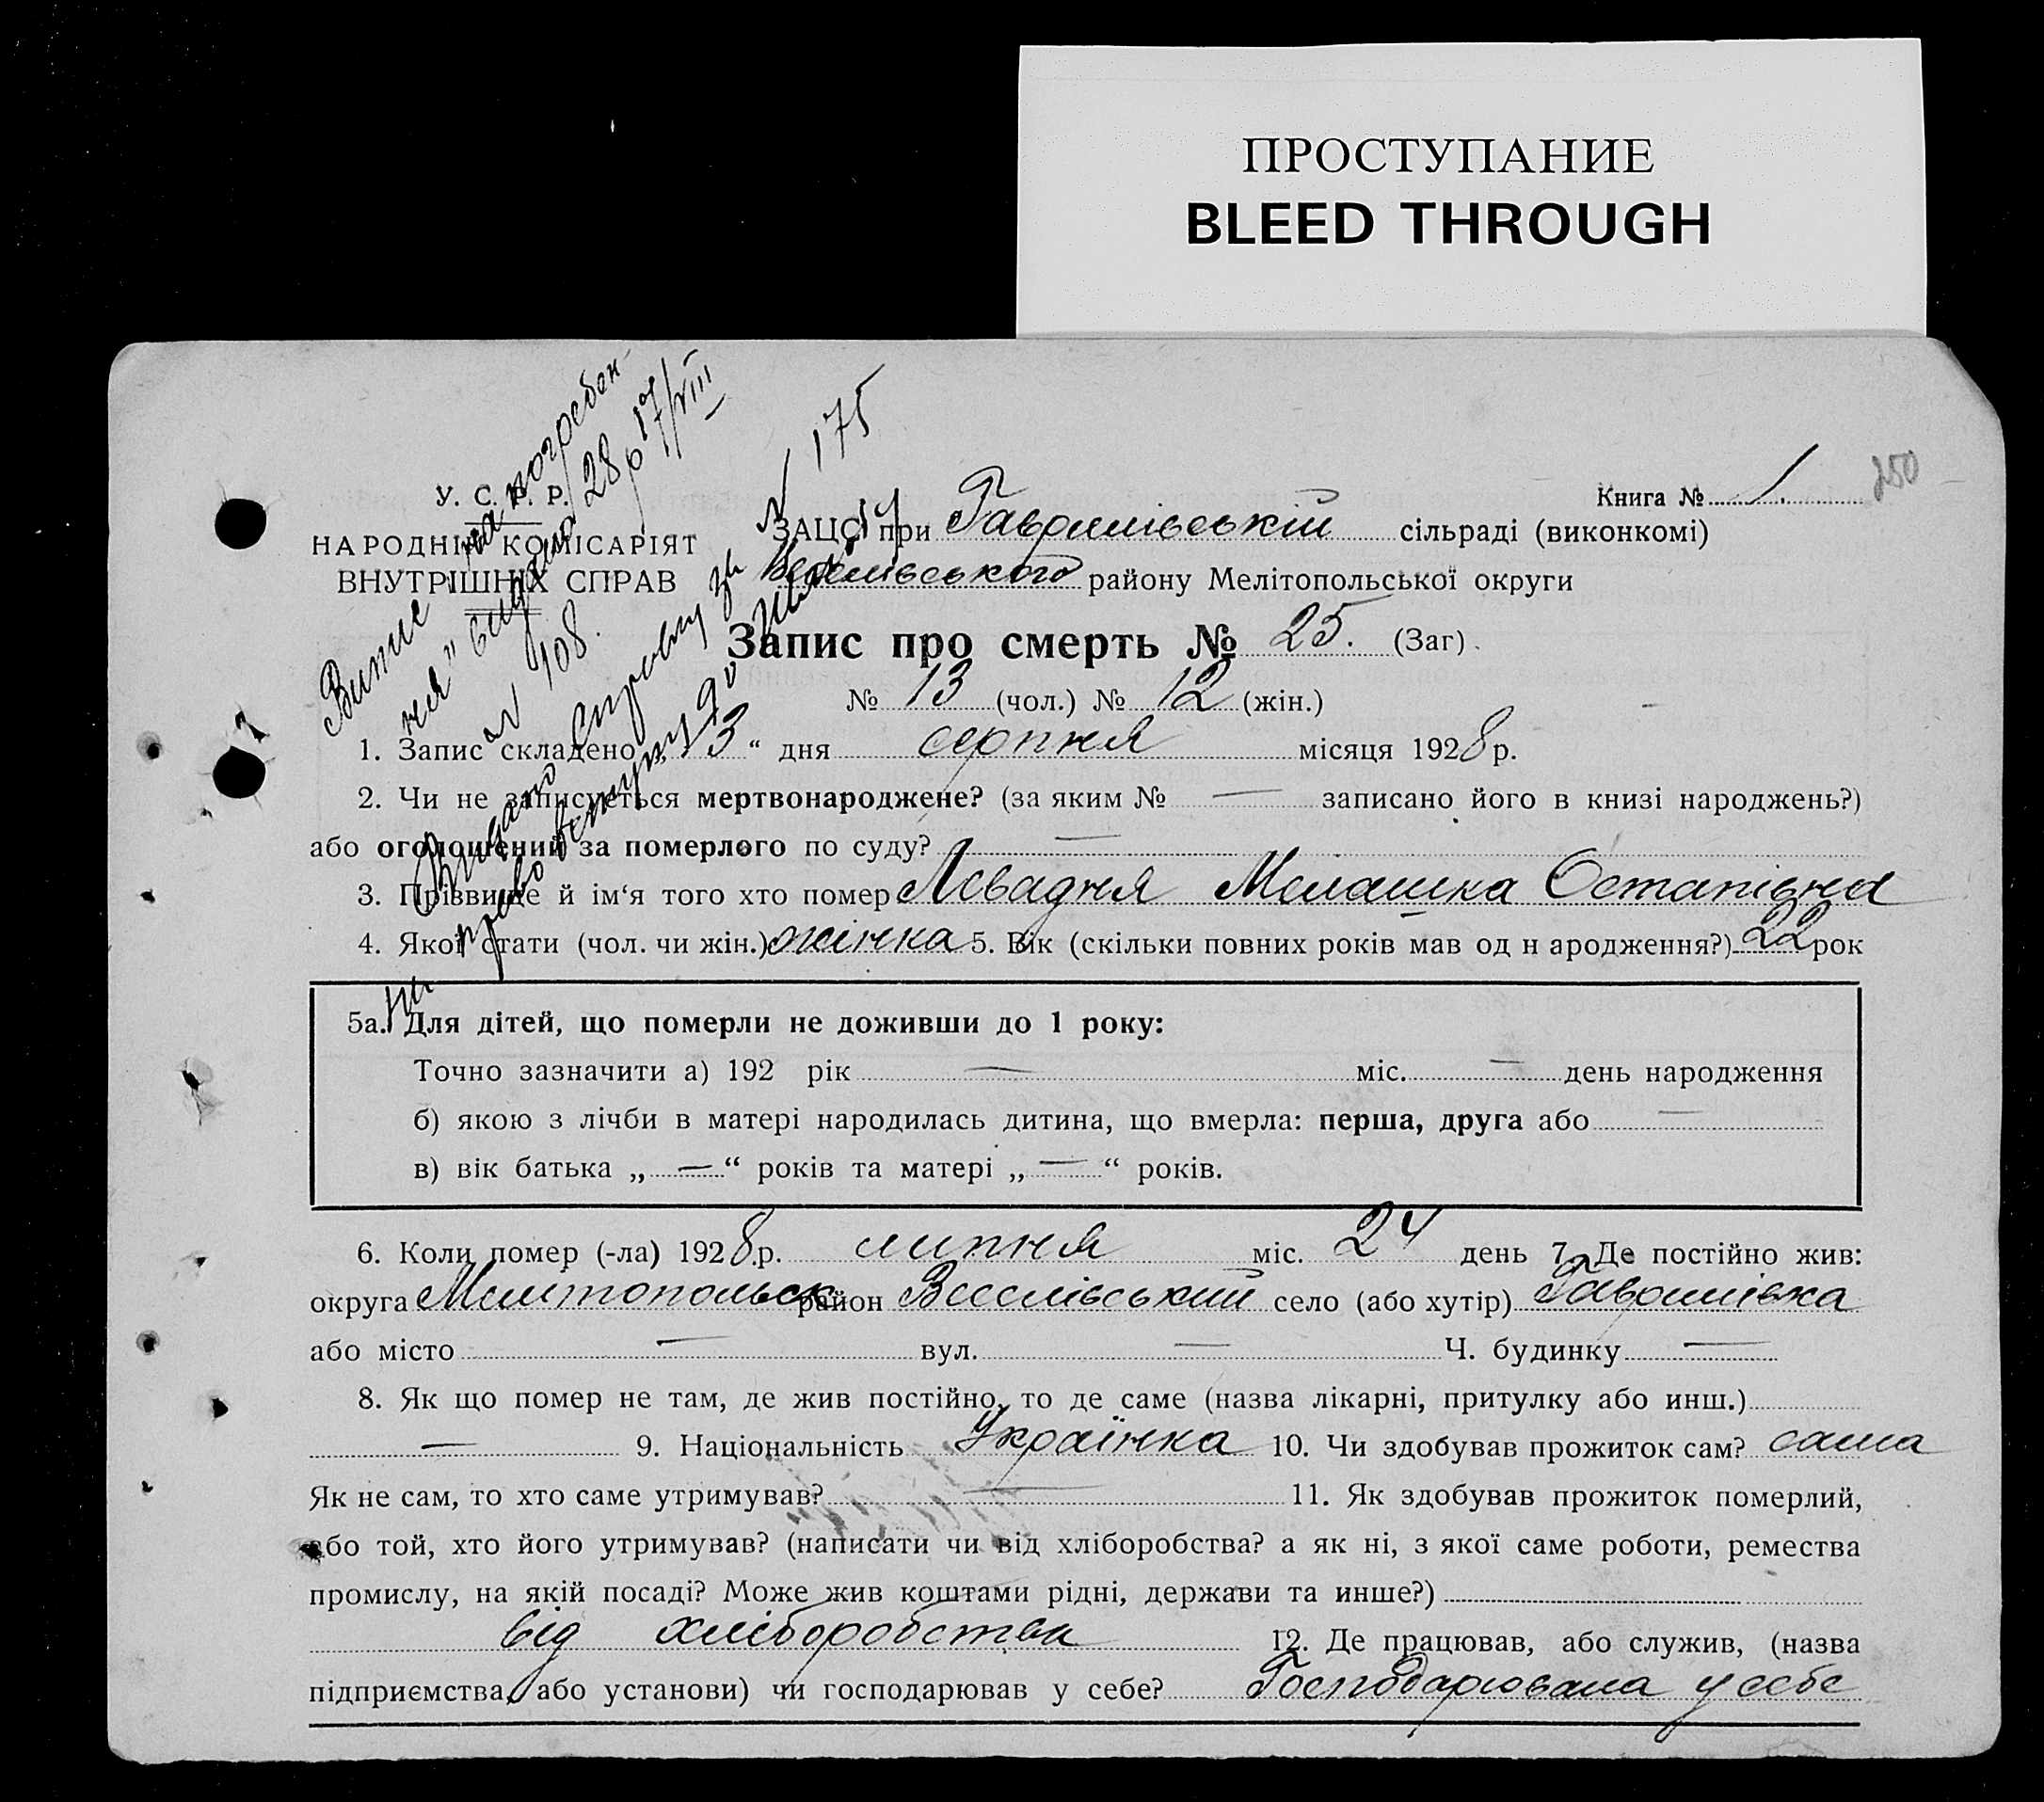 ПРОСТУПАНИЕ
BLEED THROUGH
Книга № 1.
250
У. С. Р. Р.
НАРОДНІЙ КОМІСАРІЯТ
ВНУТРІШНІХ СПРАВ
ЗАЦС при Гаврилівській сільраді (виконкомі)
Веселівського району Мелітопольської округи
Запис про смерть № 25. (Заг).
№ 13 (чол.) № 12 (жін.)
Випис на погребен-
ня" видано 28р 17/VIII
№ 108.
Видано справку за № 175
на право вступу до шлюбу
1. Запис складено „13“ дня серпня місяця 1928 р.
2. Чи не записується мертвонароджене? (за яким № — записано його в книзі народжень?)
або оголошений за померлого по суду? —
3. Прізвище й ім‘я того хто помер Левадня Мелашка Остапівна
4. Якої стати (чол. чи жін.) жінка 5. Вік (скільки повних років мав од н ародження?) 22 рок
5а. Для дітей, що померли не доживши до 1 року:
Точно зазначити а) 192 рік — міс. — день народження
б) якою з лічби в матері народилась дитина, що вмерла: перша, друга або —
в) вік батька „ — “ років та матері „ — “ років.
6. Коли помер (-ла) 1928 р. липня міс. 24 день 7. Де постійно жив:
округа Мелітопольск район Веселівський село (або хутір) Гаврилівка
або місто — вул. — Ч. будинку —
8. Як що помер не там, де жив постійно, то де саме (назва лікарні, притулку або инш.)
— 9. Національність Українка 10. Чи здобував прожиток сам? сама
Як не сам, то хто саме утримував? — 11. Як здобував прожиток померлий,
або той, хто його утримував? (написати чи від хліборобства? а як ні, з якої саме роботи, ремества
промислу, на якій посаді? Може жив коштами рідні, держави та инше?)
від хліборобства 12. Де працював, або служив, (назва
підприємства, або установи) чи господарював у себе? Господарювала у себе